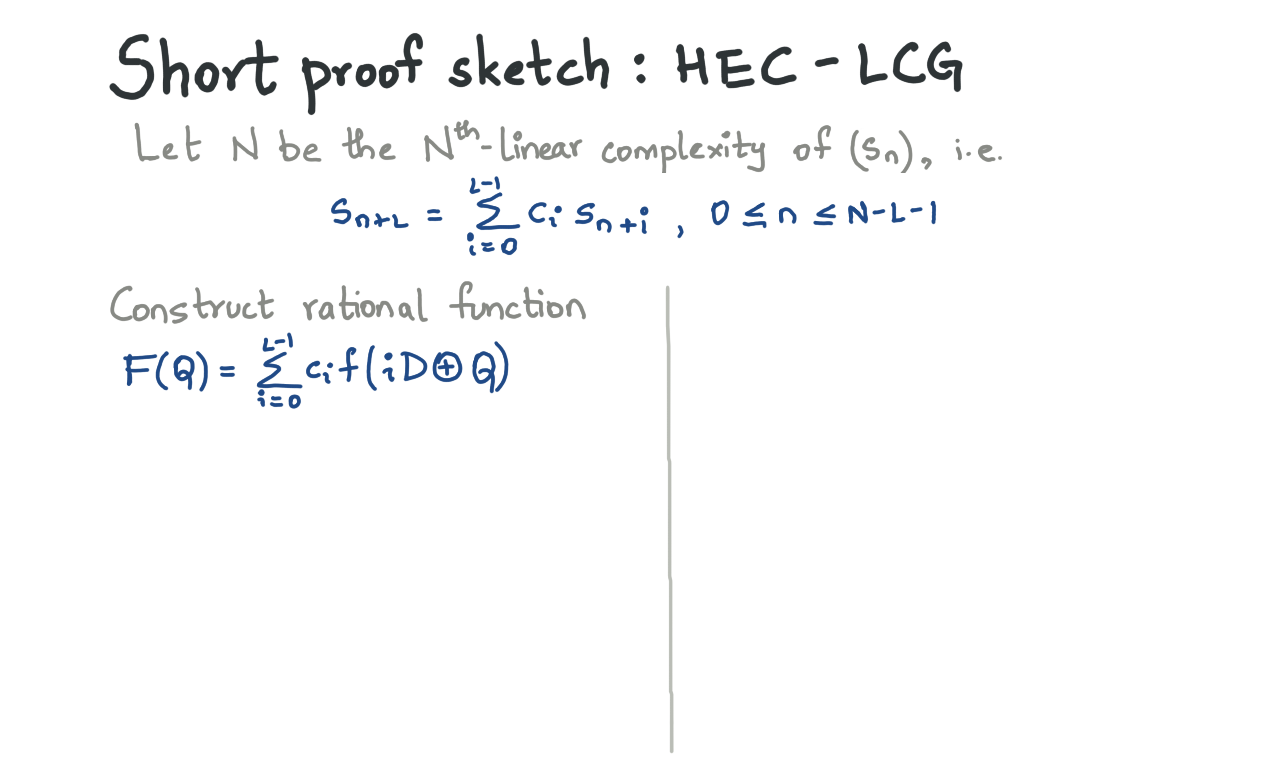 Short proof sketch : HEC - LCG
Let N be the Nᵗʰ-linear complexity of (sₙ), i.e.
sₙ₊L = ∑_{i=0}^{L-1} cᵢ sₙ₊ᵢ , 0 ≤ n ≤ N-L-1
Construct rational function
F(Q) = ∑_{i=0}^{L-1} cᵢ f(iD⊕Q)